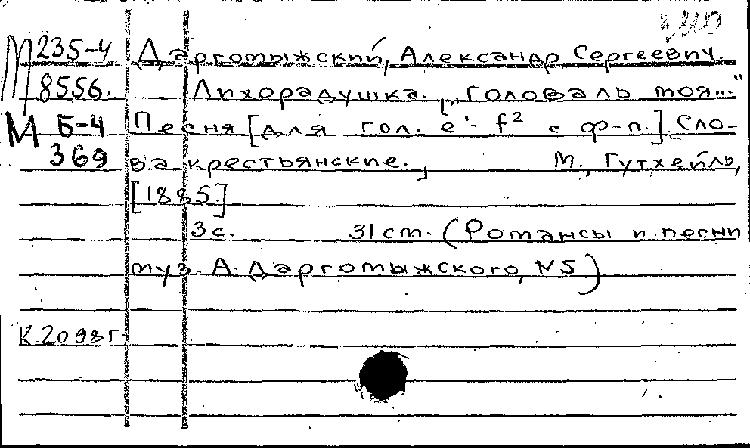 М 235-4 Даргомыжский, Александр Сергеевич.
8556. Лихорадушка. „Головаль моя..."
М Б-4 Песня [для гол. e¹- f² с ф-п.] Сло-
369 ва крестьянские., М., Гутхейль,
[1885]
3с. 31см. (Романсы и песни
муз. А. Даргомыжского, N5)
К.2098г